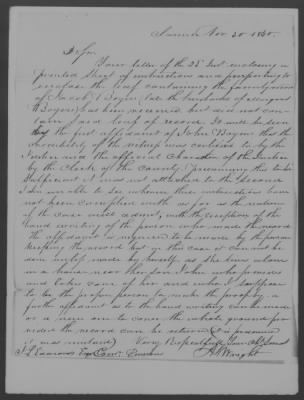 Nov 30 1840.
Dr Sir
Your letter of the 25 Inst enclosing a
printed Sheet of instructions and purporting to
enclose the leaf containing the family record
of Jacob Boyer late the husband of Margaret
Boyer has been received but did not con-
tain said leaf of record. It will be seen
by the first affidavit of John Boyer that the
of the witness was certified to by the
Justice and the official Character of the Justice
by the Clerk of the County presuming this to be
Sufficient it was not attached to the
I am unable to see wherein these instructions have
not been complied with as far as the nature
of the case will admit, with the exception of the
hand writing of the person who made the record
The affidavit is required to be made by the person
keeping the record but in this case it can not be
done only made by herself as she lives alone
in a house near her son John who provides
and takes care of her and whom I suppose
to be the proper person to make the proof by, a
further affidavit as to the hand writing can be made
or a new one to cover the whole ground pro-
vided the record can be returned (it is presumed
it was mislaid) Very Respectfully Your Obt Servt
J L Edwards Esqr Comr Pensions Wright